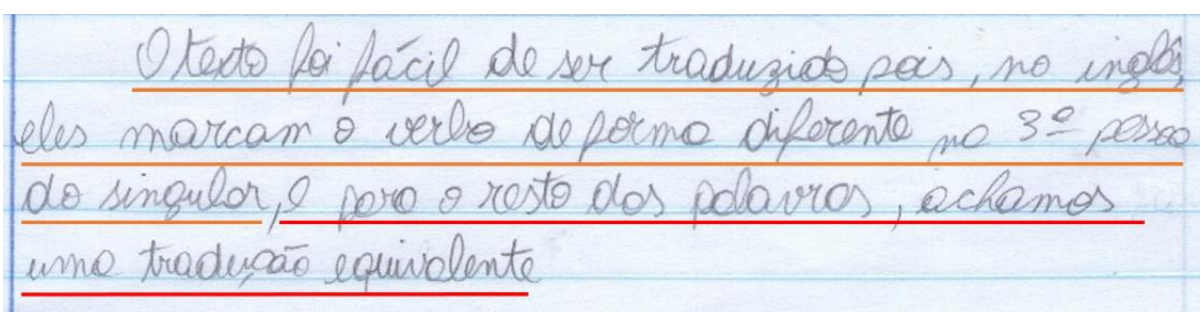 O texto foi fácil de ser traduzido pois, no inglês,
eles marcam o verbo de forma diferente na 3ª pessoa
do singular, e para o resto das palavras, achamos
uma tradução equivalente